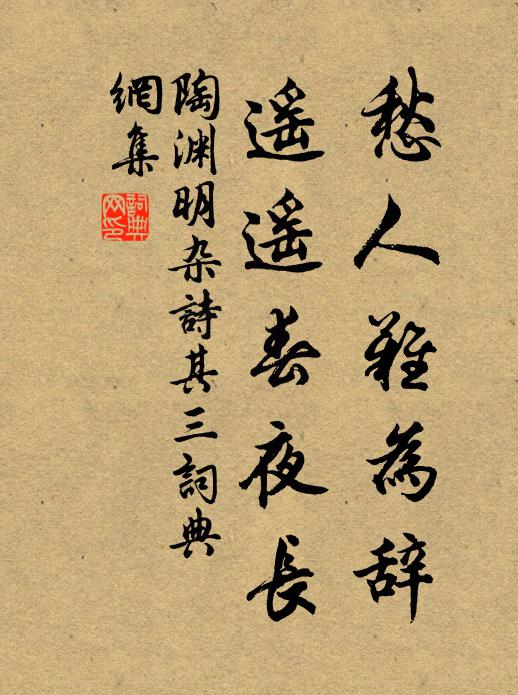 愁人難為辞
遥遥春夜長
陶渊明杂詩其三詞典
網集
詞典網印